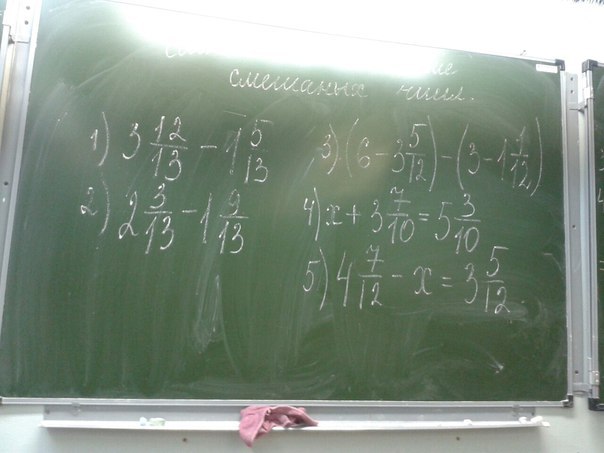 смешаных чисел.
1) 3 12/13 - 1 5/13
2) 2 3/13 - 1 9/13
3) (6 - 3 5/12) - (3 - 1 1/12)
4) x + 3 7/10 = 5 3/10
5) 4 7/12 - x = 3 5/12